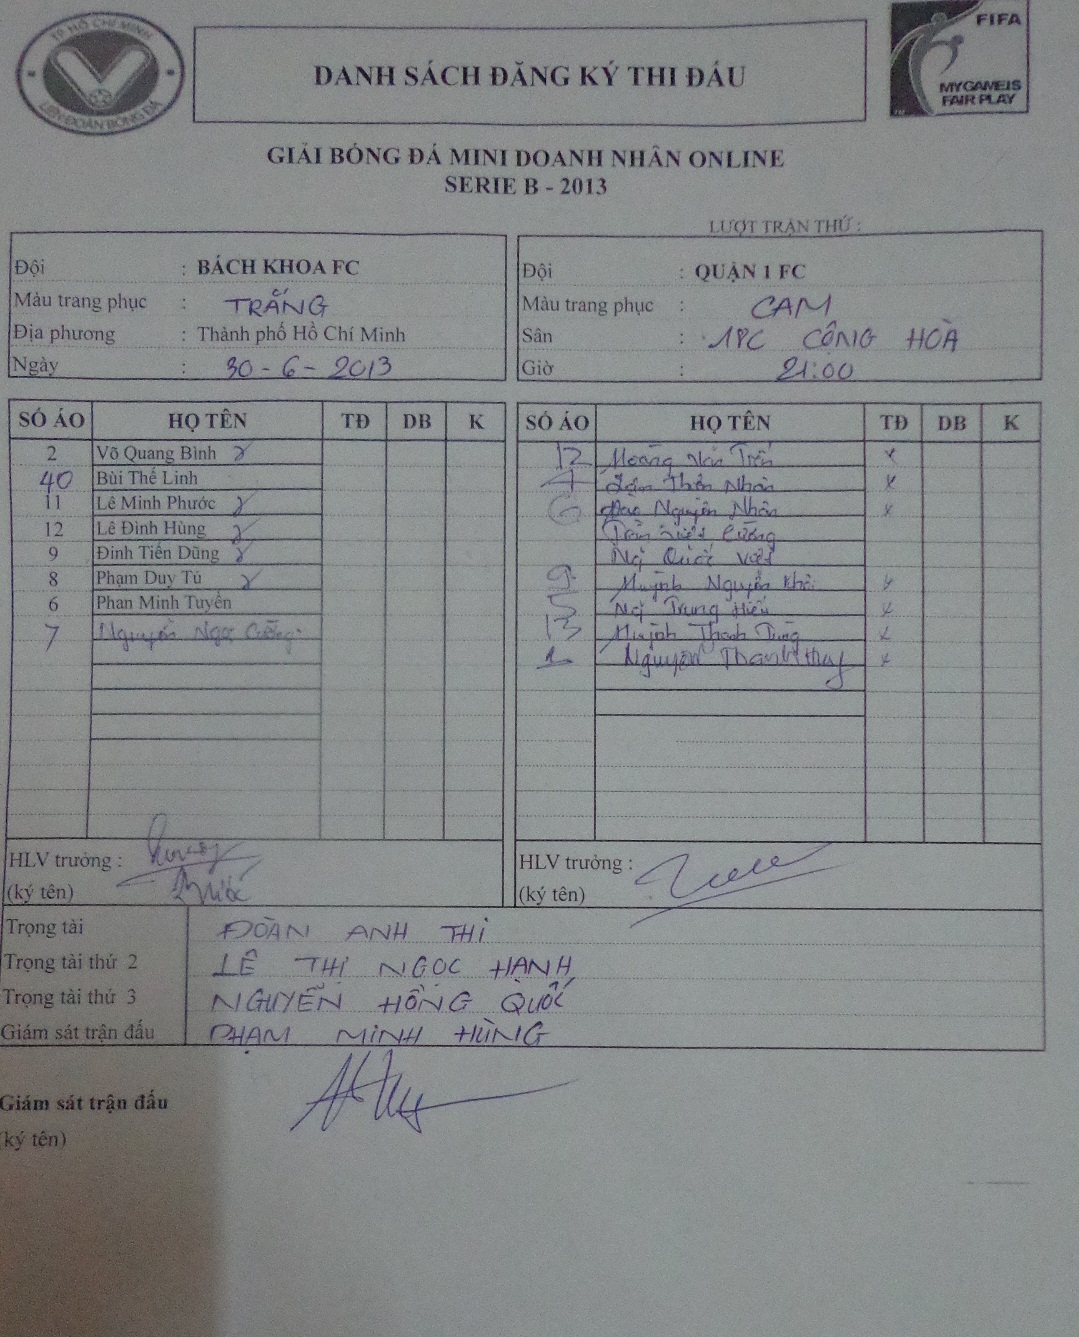 TP HỒ CHÍ MINH
LIÊN ĐOÀN BÓNG ĐÁ
DANH SÁCH ĐĂNG KÝ THI ĐẤU
FIFA
MY GAME IS
FAIR PLAY
GIẢI BÓNG ĐÁ MINI DOANH NHÂN ONLINE
SERIE B - 2013
LƯỢT TRẬN THỨ :
Đội : BÁCH KHOA FC
Màu trang phục : TRẮNG
Địa phương : Thành phố Hồ Chí Minh
Ngày : 30 - 6 - 2013
Đội : QUẬN 1 FC
Màu trang phục : CAM
Sân : 18C CỘNG HOÀ
Giờ : 21:00
SỐ ÁO HỌ TÊN TĐ DB K
2 Võ Quang Bình
40 Bùi Thế Linh
11 Lê Minh Phước
12 Lê Đình Hùng
9 Đinh Tiến Dũng
8 Phạm Duy Tú
6 Phan Minh Tuyền
7 Nguyễn Ngọc Cường
SỐ ÁO HỌ TÊN TĐ DB K
12 Hoàng Văn x
7 Nhân x
6 Đào Nguyên Nhân x
Trần Cường
Ng Quốc Việt
9 Huỳnh Nguyễn Khôi x
5 Ng Trung Hiếu x
13 Huỳnh Thanh Tùng x
1 Nguyễn Thanh Huy x
HLV trưởng :
(ký tên)
HLV trưởng :
(ký tên)
Trọng tài ĐOÀN ANH THI
Trọng tài thứ 2 LÊ THỊ NGỌC HẠNH
Trọng tài thứ 3 NGUYỄN HỒNG QUỐC
Giám sát trận đấu PHẠM MINH HÙNG
Giám sát trận đấu
(ký tên)